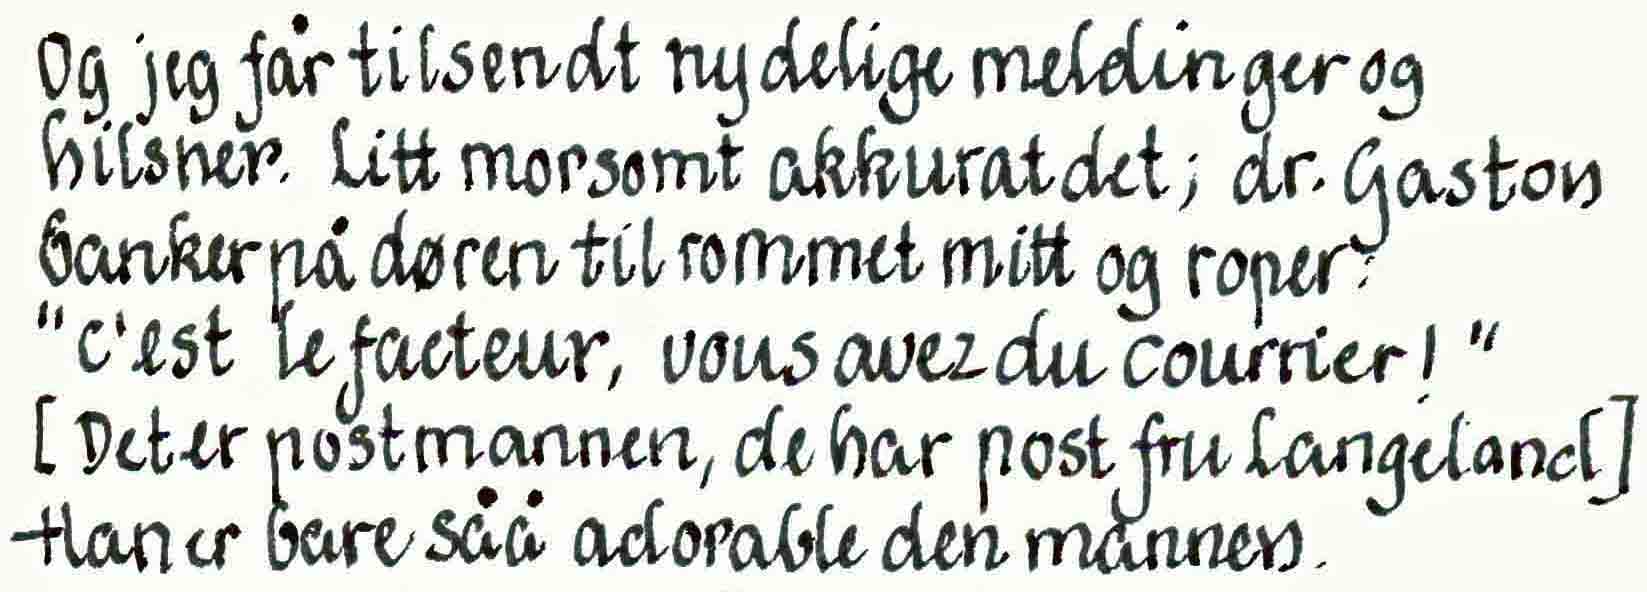 Og jeg får tilsendt nydelige meldinger og
hilsner. Litt morsomt akkurat det; dr. Gaston
banker på døren til rommet mitt og roper:
"c'est le facteur, vous avez du courrier!"
[Det er postmannen, de har post fru Langeland]
Han er bare såå adorable den mannen.